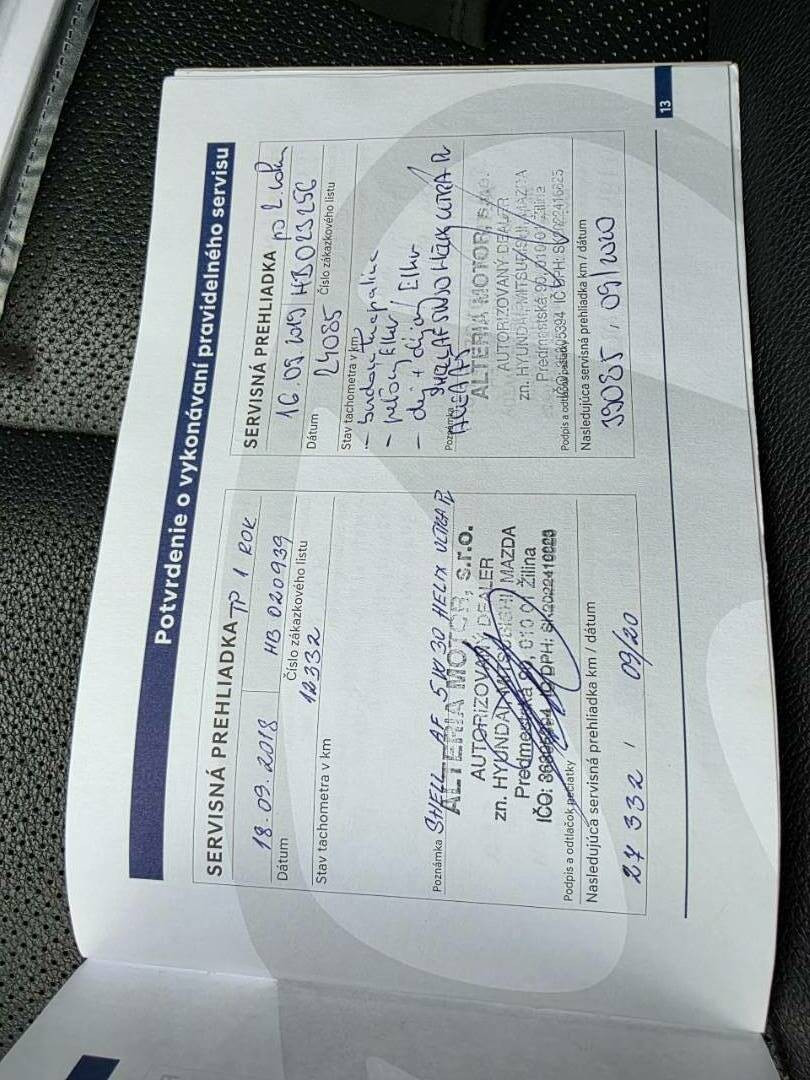 Potvrdenie o vykonávaní pravidelného servisu
SERVISNÁ PREHLIADKA TP 1 ROK
18.09.2018 HB 020939
Dátum Číslo zákazkového listu
12332
Stav tachometra v km
Poznámka SHELL AF 5W30 HELIX ULTRA
ALTERIA MOTOR, s.r.o.
AUTORIZOVANÝ DEALER
zn. HYUNDAI, MITSUBISHI, MAZDA
Predmestská 90, 010 01 Žilina
IČO: IČ DPH: SK2022416625
Podpis a odtlačok pečiatky
Nasledujúca servisná prehliadka km / dátum
27 332 , 09/20
SERVISNÁ PREHLIADKA po 2. roku
16.09.2019 HB023256
Dátum Číslo zákazkového listu
24085
Stav tachometra v km
- filter
- olej + filter
Poznámka SHELL AF 5W30 HELIX ULTRA
ALTERIA MOTOR, s.r.o.
AUTORIZOVANÝ DEALER
zn. HYUNDAI, MITSUBISHI, MAZDA
Predmestská 90, 010 01 Žilina
IČ DPH: SK2022416625
Podpis a odtlačok pečiatky
Nasledujúca servisná prehliadka km / dátum
39085 , 09/2020
13